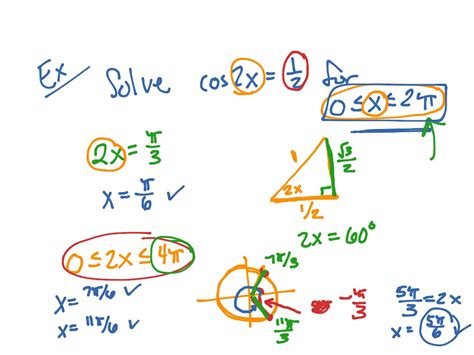 Ex/ Solve cos 2x = 1/2 for
0 ≤ x ≤ 2π
2x = π/3
x = π/6 ✓
1
√3/2
2x
1/2
2x = 60°
0 ≤ 2x ≤ 4π
x = 7π/6 ✓
x = 11π/6 ✓
7π/3
-π/3
11π/3
5π/3 = 2x
x = 5π/6 ✓